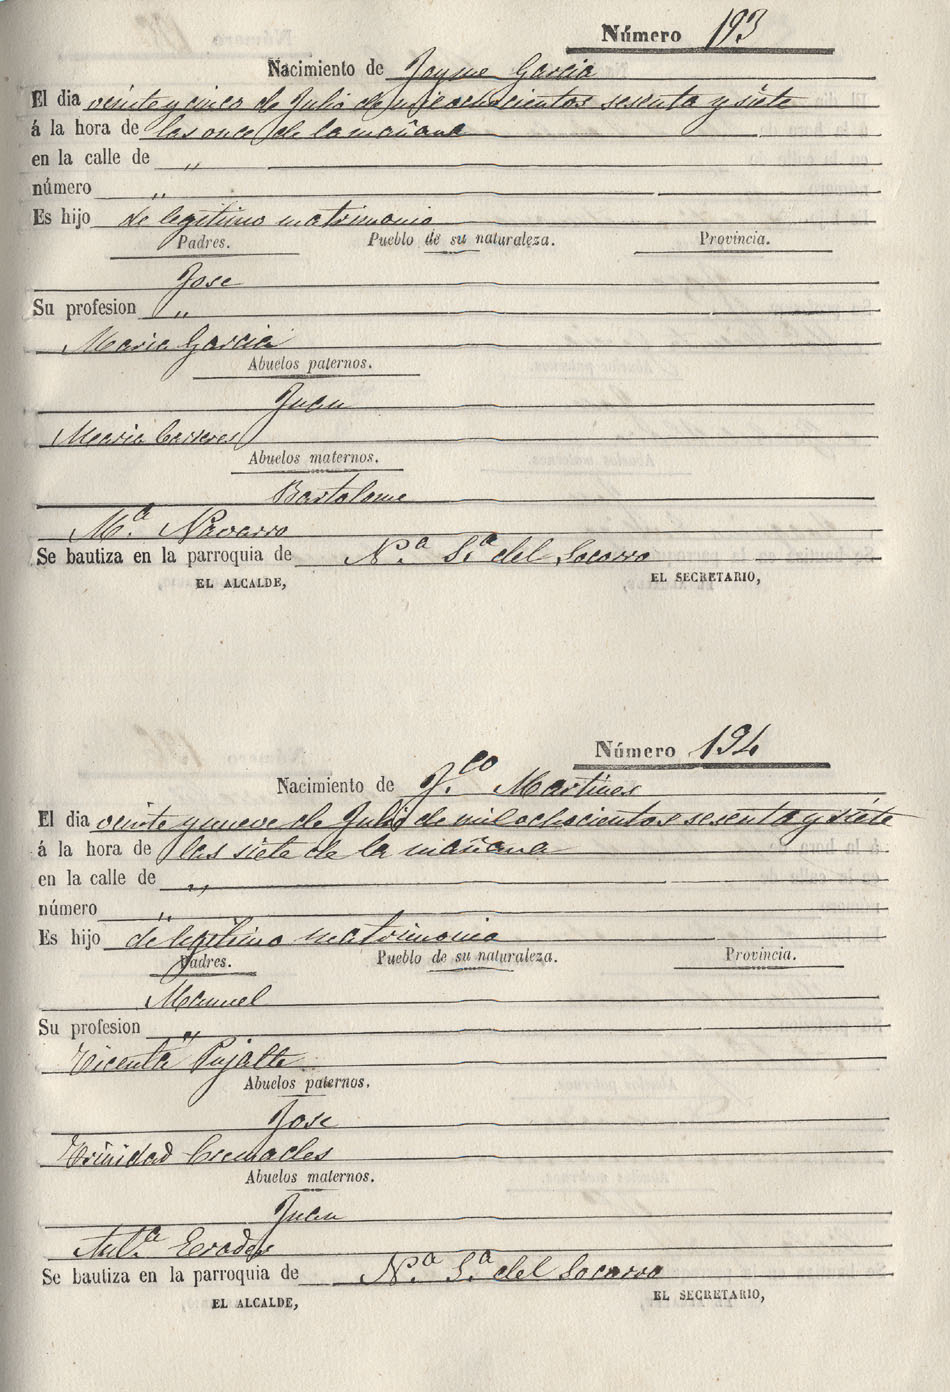 Número 193
Nacimiento de Jayme Garcia
El dia veinte y cinco de Julio de mil ochocientos sesenta y siete
á la hora de las once de la mañana
en la calle de "
número "
Es hijo de legitimo matrimonio
Padres. Pueblo de su naturaleza. Provincia.
Jose
Su profesion "
Maria Garcia
Abuelos paternos.
Juan
Maria
Abuelos maternos.
Bartolome
Mª Navarro
Se bautiza en la parroquia de Nª Sª del Socorro
EL ALCALDE, EL SECRETARIO,
Número 194
Nacimiento de Fco Martinez
El dia veinte y nueve de Julio de mil ochocientos sesenta y siete
á la hora de las siete de la mañana
en la calle de "
número "
Es hijo de legitimo matrimonio
Padres. Pueblo de su naturaleza. Provincia.
Manuel
Su profesion "
Vicenta Pujalte
Abuelos paternos.
Jose
Trinidad Cremades
Abuelos maternos.
Juan
Antª
Se bautiza en la parroquia de Nª Sª del Socorro
EL ALCALDE, EL SECRETARIO,